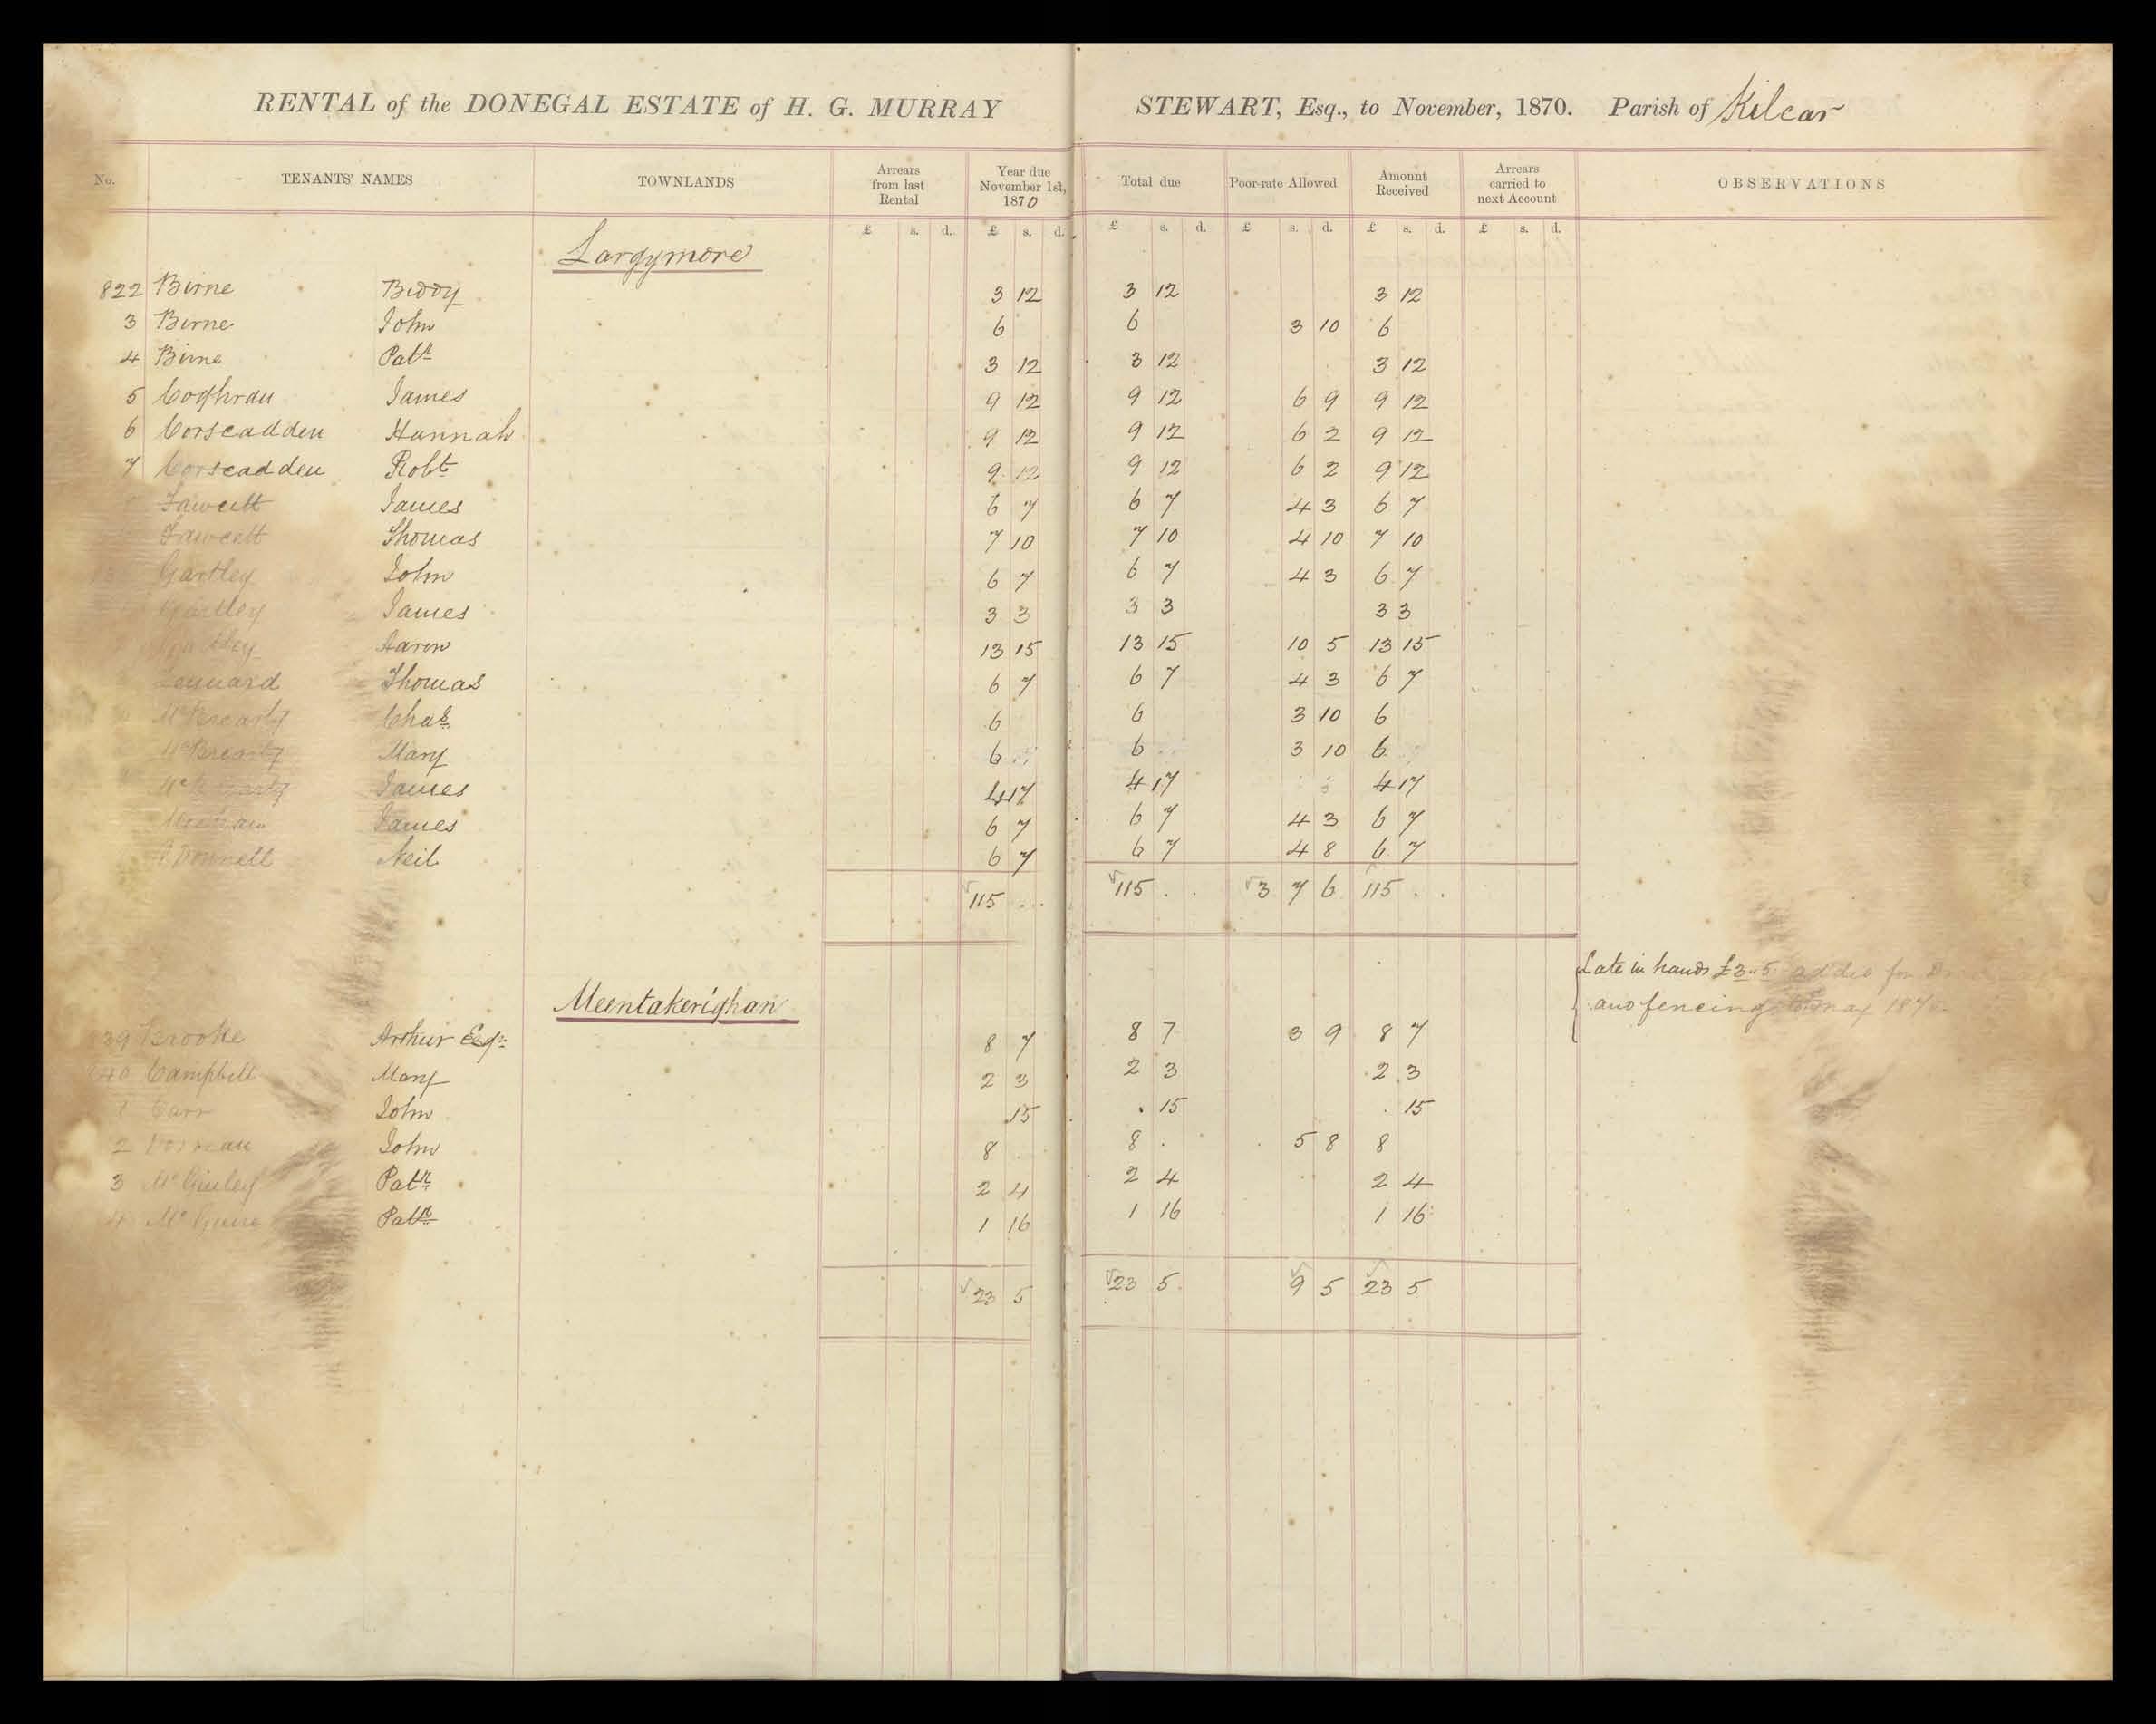 RENTAL of the DONEGAL ESTATE of H. G. MURRAY STEWART, Esq., to November, 1870. Parish of Kilcar
No. TENANTS' NAMES TOWNLANDS Arrears from last Rental Year due November 1st, 1870 Total due Poor-rate Allowed Amount Received Arrears carried to next Account OBSERVATIONS
£ s. d. £ s. d. £ s. d. £ s. d. £ s. d. £ s. d.
Largymore
822 Birne Biddy 3 12 3 12 3 12
3 Birne John 6 6 3 10 6
4 Birne Patk 3 12 3 12 3 12
5 Coghran James 9 12 9 12 6 9 9 12
6 Corscadden Hannah 9 12 9 12 6 2 9 12
7 Corscadden Robt 9 12 9 12 6 2 9 12
Fawcett James 6 7 6 7 4 3 6 7
Fawcett Thomas 7 10 7 10 4 10 7 10
Gartley John 6 7 6 7 4 3 6 7
Gartley James 3 3 3 3 3 3
Gartley Aaron 13 15 13 15 10 5 13 15
Lennard Thomas 6 7 6 7 4 3 6 7
McBrearty Chas 6 6 3 10 6
McBrearty Mary 6 6 3 10 6
McBrearty James 4 17 4 17 4 17
James 6 7 6 7 4 3 6 7
O'Donnell Neil 6 7 6 7 4 8 6 7
115 . . 115 . . 3 7 6 115 . .
Late in hands £3-5 added for
Meentakerighan and fencing to May 187
839 Brooke Arthur Esqr 8 7 8 7 3 9 8 7
840 Campbell Mary 2 3 2 3 2 3
1 Carr John 15 . 15 . 15
2 John 8 8 . 5 8 8
3 McGinley Patk 2 4 2 4 2 4
4 McGuire Patk 1 16 1 16 1 16
23 5 23 5 9 5 23 5